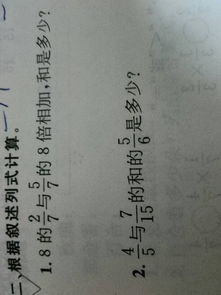 二、根据叙述列式计算。
1. 8 的 2/7 与 5/7 的 8 倍相加,和是多少?
2. 4/5 与 7/15 的和的 5/6 是多少?